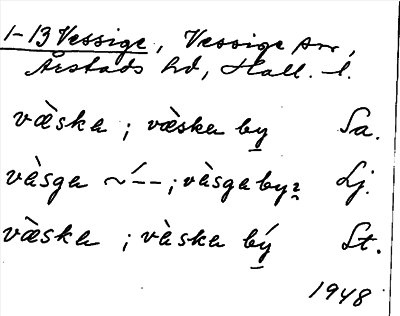 1-13 Vessige, Vessige sn,
Årstads hd, Hall. l.
væ̀ska ; væ̀ska by Sa.
và̀sga ~´-- ; và̀sga by2 Lj.
væ̀ska ; và̀ska bý St.
1948